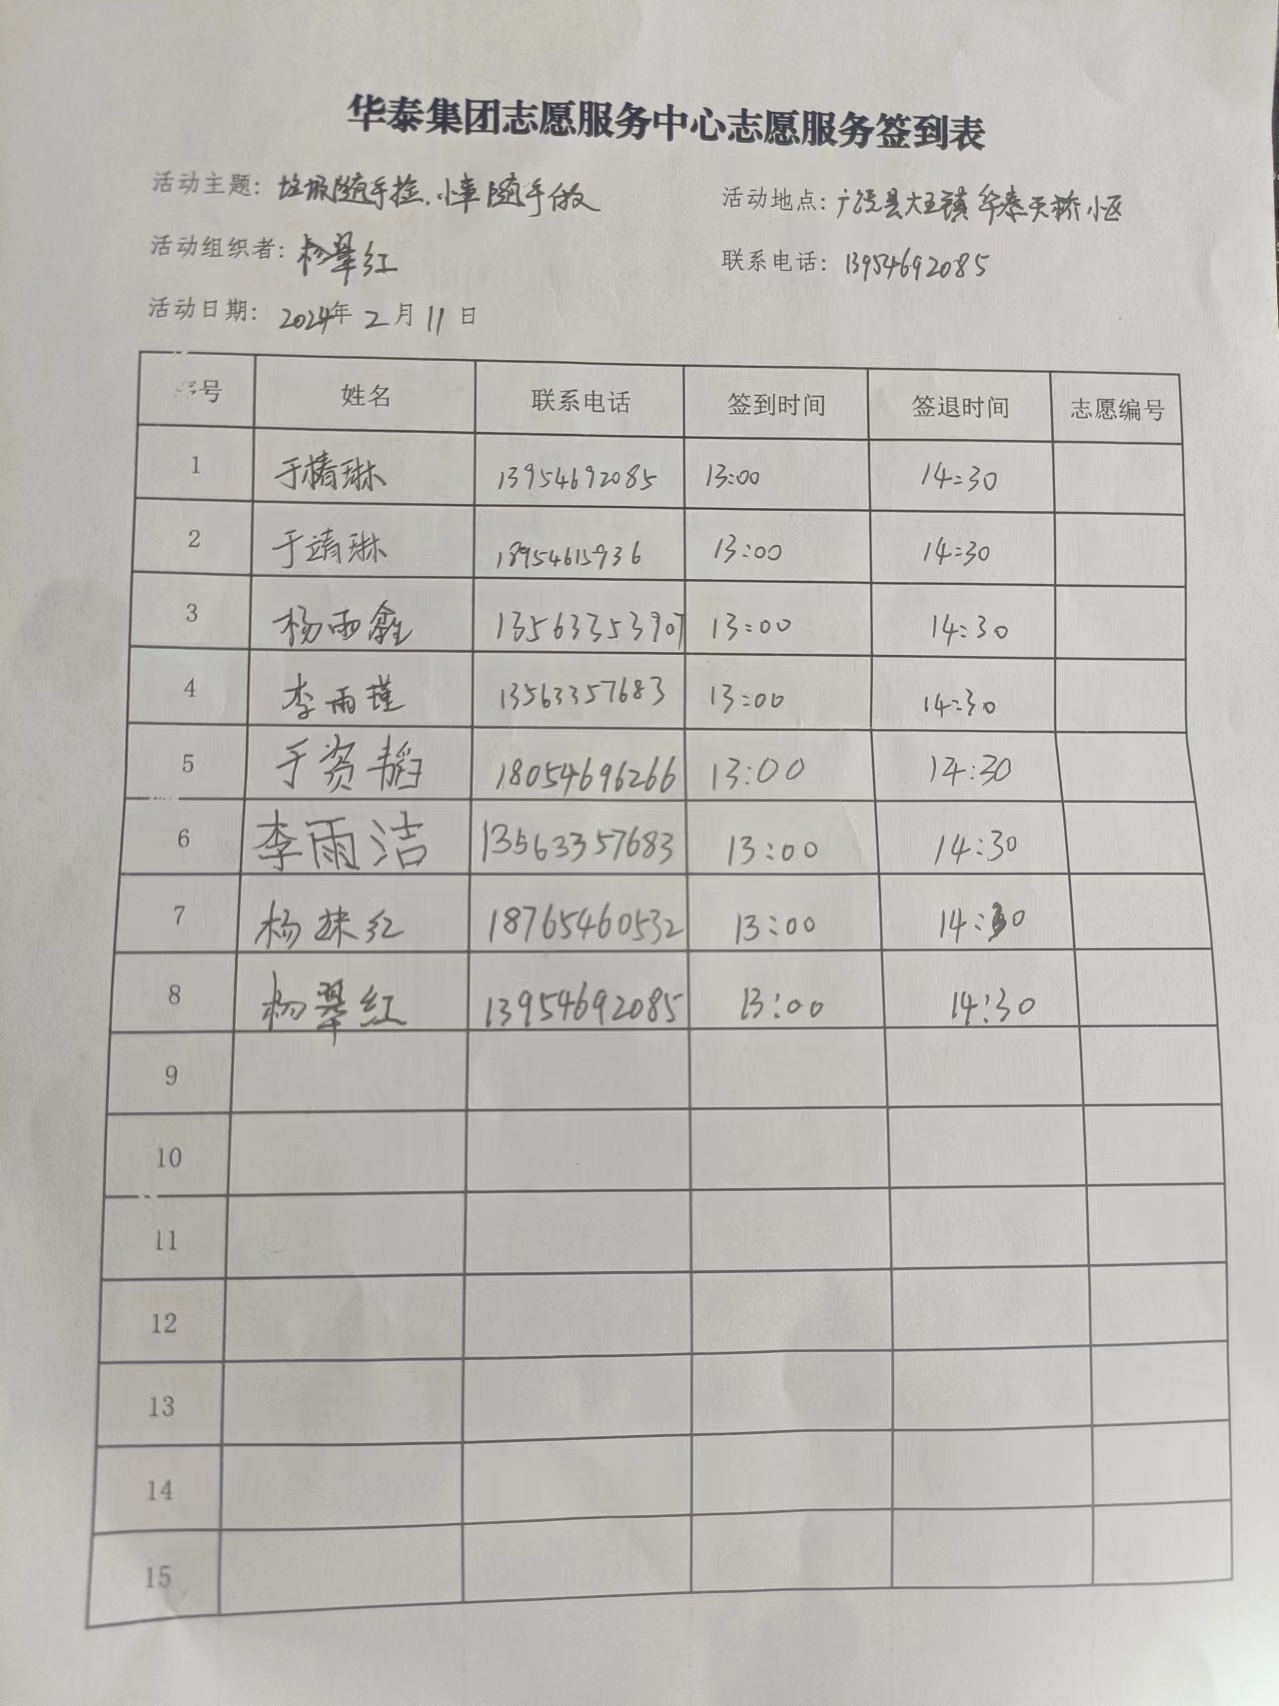 华泰集团志愿服务中心志愿服务签到表
活动主题：垃圾随手捡，小事随手做 活动地点：广饶县大王镇华泰天桥小区
活动组织者：杨翠红 联系电话：13954692085
活动日期：2024年2月11日
序号 姓名 联系电话 签到时间 签退时间 志愿编号
1 于椿琳 13954692085 13:00 14:30
2 于靖琳 18954615936 13:00 14:30
3 杨雨鑫 13563353907 13:00 14:30
4 李雨瑾 13563357683 13:00 14:30
5 于资韬 18054696266 13:00 14:30
6 李雨洁 13563357683 13:00 14:30
7 杨妹红 18765460532 13:00 14:30
8 杨翠红 13954692085 13:00 14:30
9
10
11
12
13
14
15